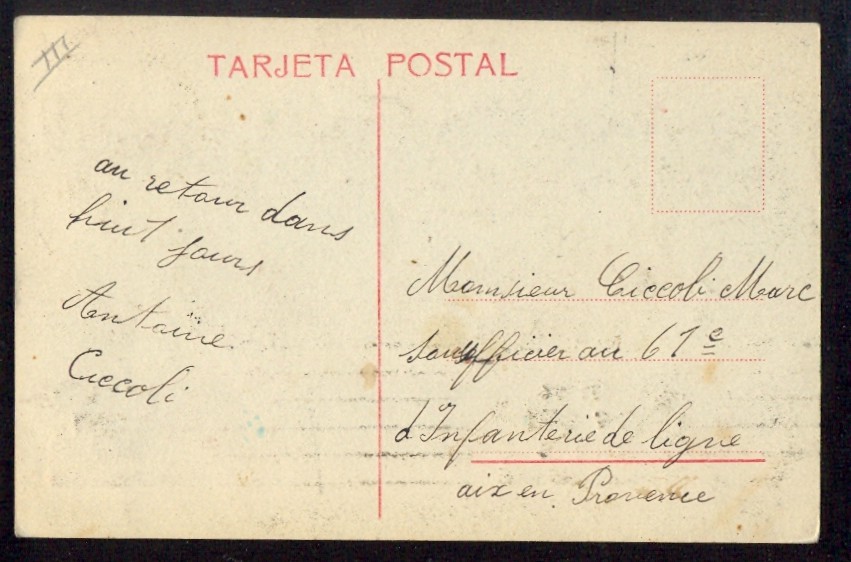 III
TARJETA POSTAL
au retour dans
huit jours
Antoine
Ciccoli
Monsieur Ciccoli Marc
sousofficier au 61e
d'Infanterie de ligne
aix en Provence